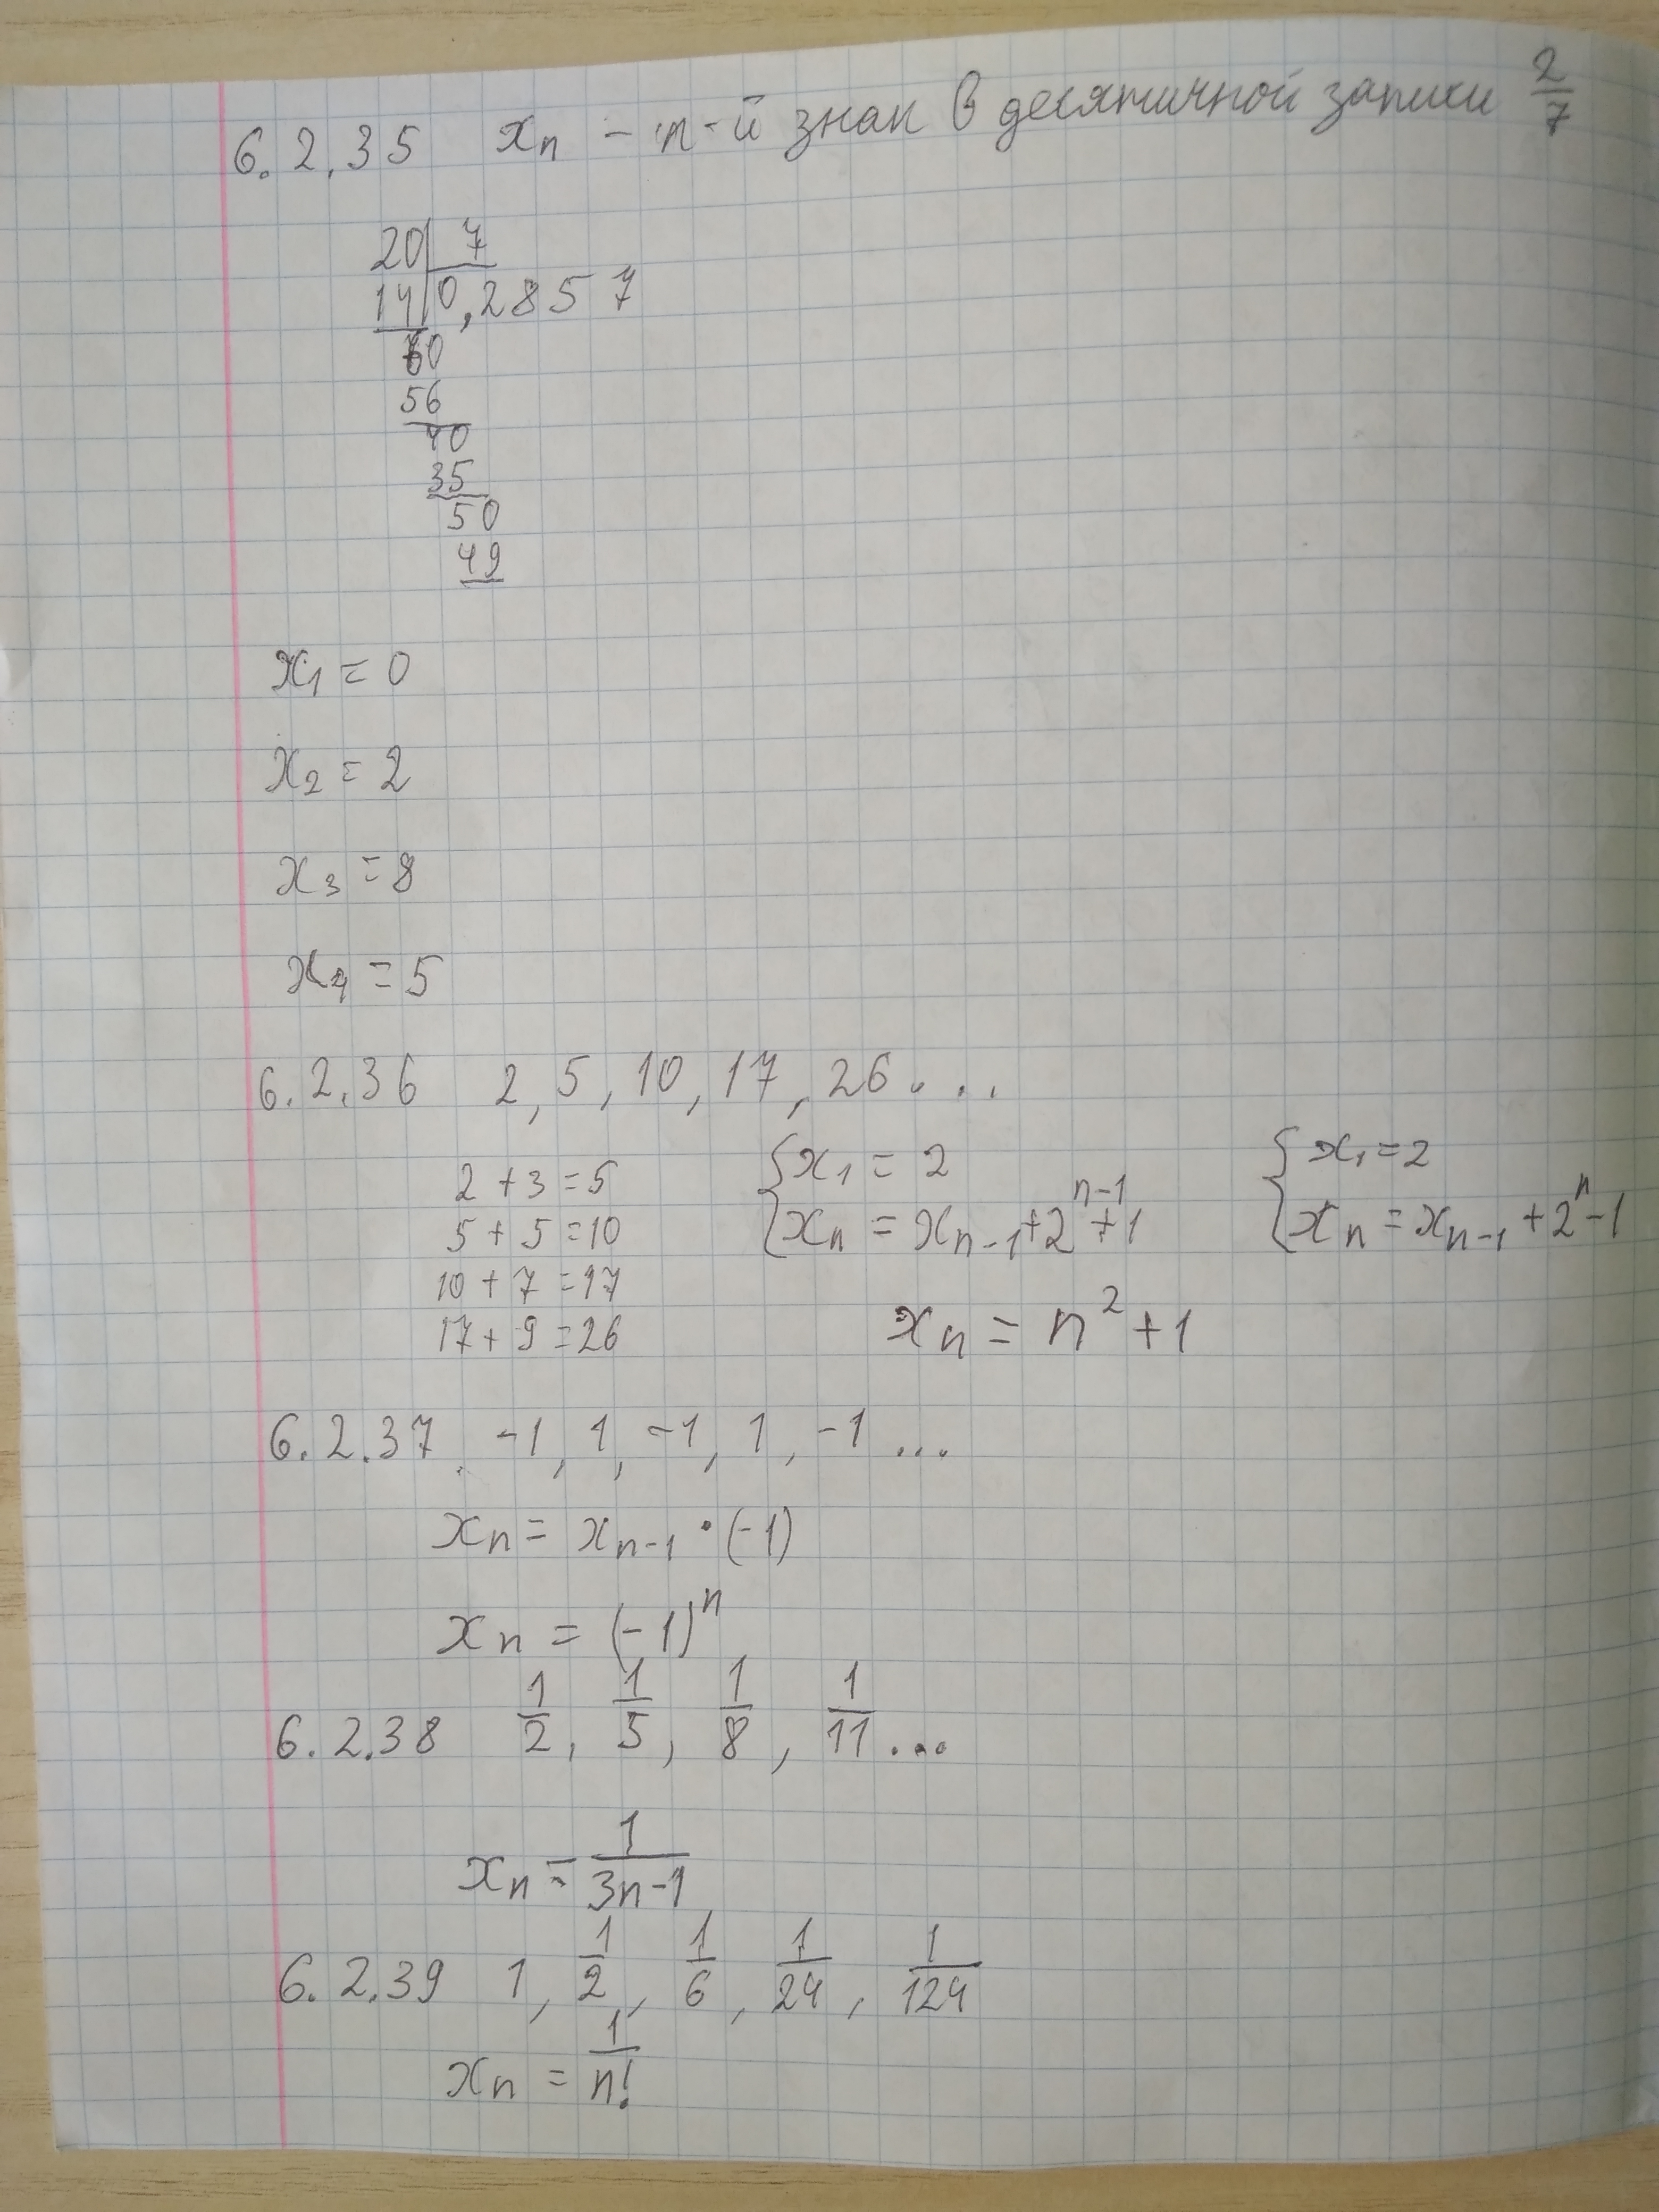 6.2.35 xₙ – n-й знак в десятичной записи 2/7
20 | 7
14 | 0,2857
60
56
40
35
50
49
x₁ = 0
x₂ = 2
x₃ = 8
x₄ = 5
6.2.36 2, 5, 10, 17, 26...
2 + 3 = 5
5 + 5 = 10
10 + 7 = 17
17 + 9 = 26
{ x₁ = 2
xₙ = xₙ₋₁ + 2ⁿ⁻¹ + 1
{ x₁ = 2
xₙ = xₙ₋₁ + 2ⁿ - 1
xₙ = n² + 1
6.2.37 -1, 1, -1, 1, -1 ...
xₙ = xₙ₋₁ · (-1)
xₙ = (-1)ⁿ
6.2.38 1/2, 1/5, 1/8, 1/11...
xₙ = 1/(3n-1)
6.2.39 1, 1/2, 1/6, 1/24, 1/124
xₙ = 1/n!